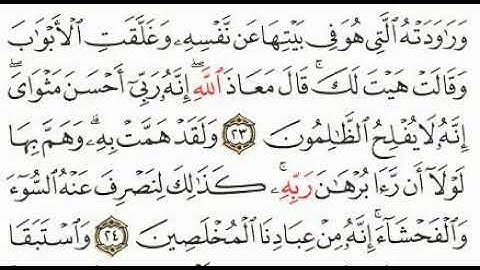 وَرَٰوَدَتْهُ ٱلَّتِى هُوَ فِى بَيْتِهَا عَن نَّفْسِهِۦ وَغَلَّقَتِ ٱلْأَبْوَٰبَ
وَقَالَتْ هَيْتَ لَكَ ۚ قَالَ مَعَاذَ ٱللَّهِ ۖ إِنَّهُۥ رَبِّىٓ أَحْسَنَ مَثْوَاىَ ۖ
إِنَّهُۥ لَا يُفْلِحُ ٱلظَّٰلِمُونَ ٢٣ وَلَقَدْ هَمَّتْ بِهِۦ ۖ وَهَمَّ بِهَا
لَوْلَآ أَن رَّءَا بُرْهَٰنَ رَبِّهِۦ ۚ كَذَٰلِكَ لِنَصْرِفَ عَنْهُ ٱلسُّوٓءَ
وَٱلْفَحْشَآءَ ۚ إِنَّهُۥ مِنْ عِبَادِنَا ٱلْمُخْلَصِينَ ٢٤ وَٱسْتَبَقَا